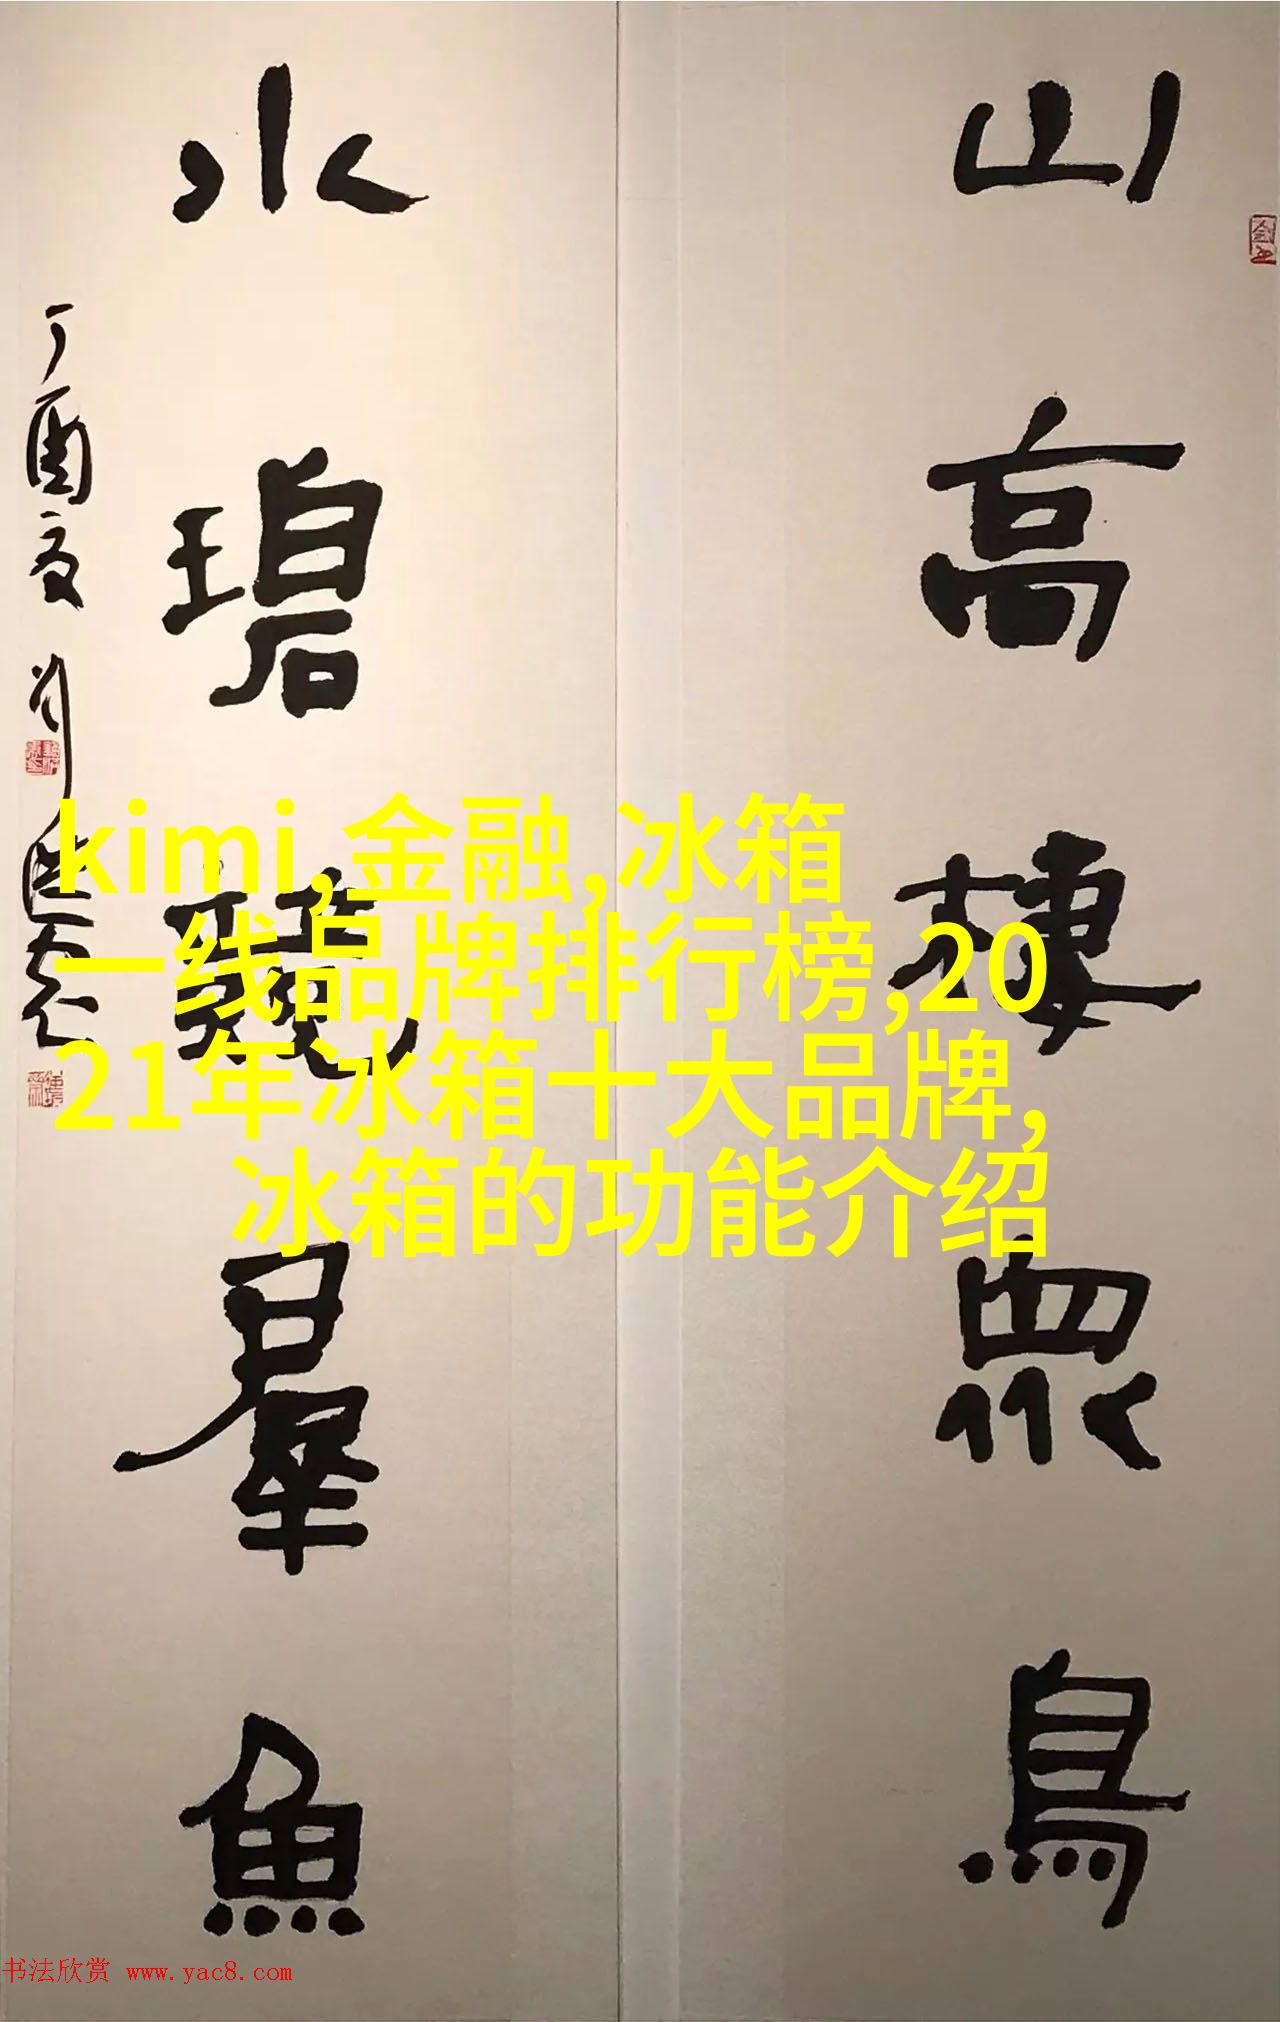 山高棲眾鳥
水碧羣魚
丁酉夏刘
kimi,金融,冰箱
一线品牌排行榜,20
21年冰箱十大品牌,
冰箱的功能介绍
书法欣赏 www.yac8.com